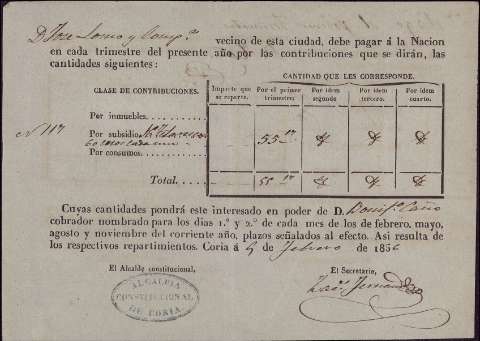 D. Jose Lomo y Comp.ª vecino de esta ciudad, debe pagar á la Nacion
en cada trimestre del presente año por las contribuciones que se dirán, las
cantidades siguientes:
CANTIDAD QUE LES CORRESPONDE.
CLASE DE CONTRIBUCIONES.
Importe que se reparte.
Por el primer trimestre.
Por idem segundo
Por idem tercero.
Por idem cuarto.
Por inmuebles.
Nº 117
Por subsidio, 55 17
Por consumos.
Total. 55 17
Cuyas cantidades pondrá este interesado en poder de D. Bonif.º Caño
cobrador nombrado para los dias 1.º y 2.º de cada mes de los de febrero, mayo,
agosto y noviembre del corriente año, plazos señalados al efecto. Asi resulta de
los respectivos repartimientos. Coria á de febrero de 1856
El Alcalde constitucional,
El Secretario,
ALCALDIA
CONSTITUCIONAL
DE CORIA